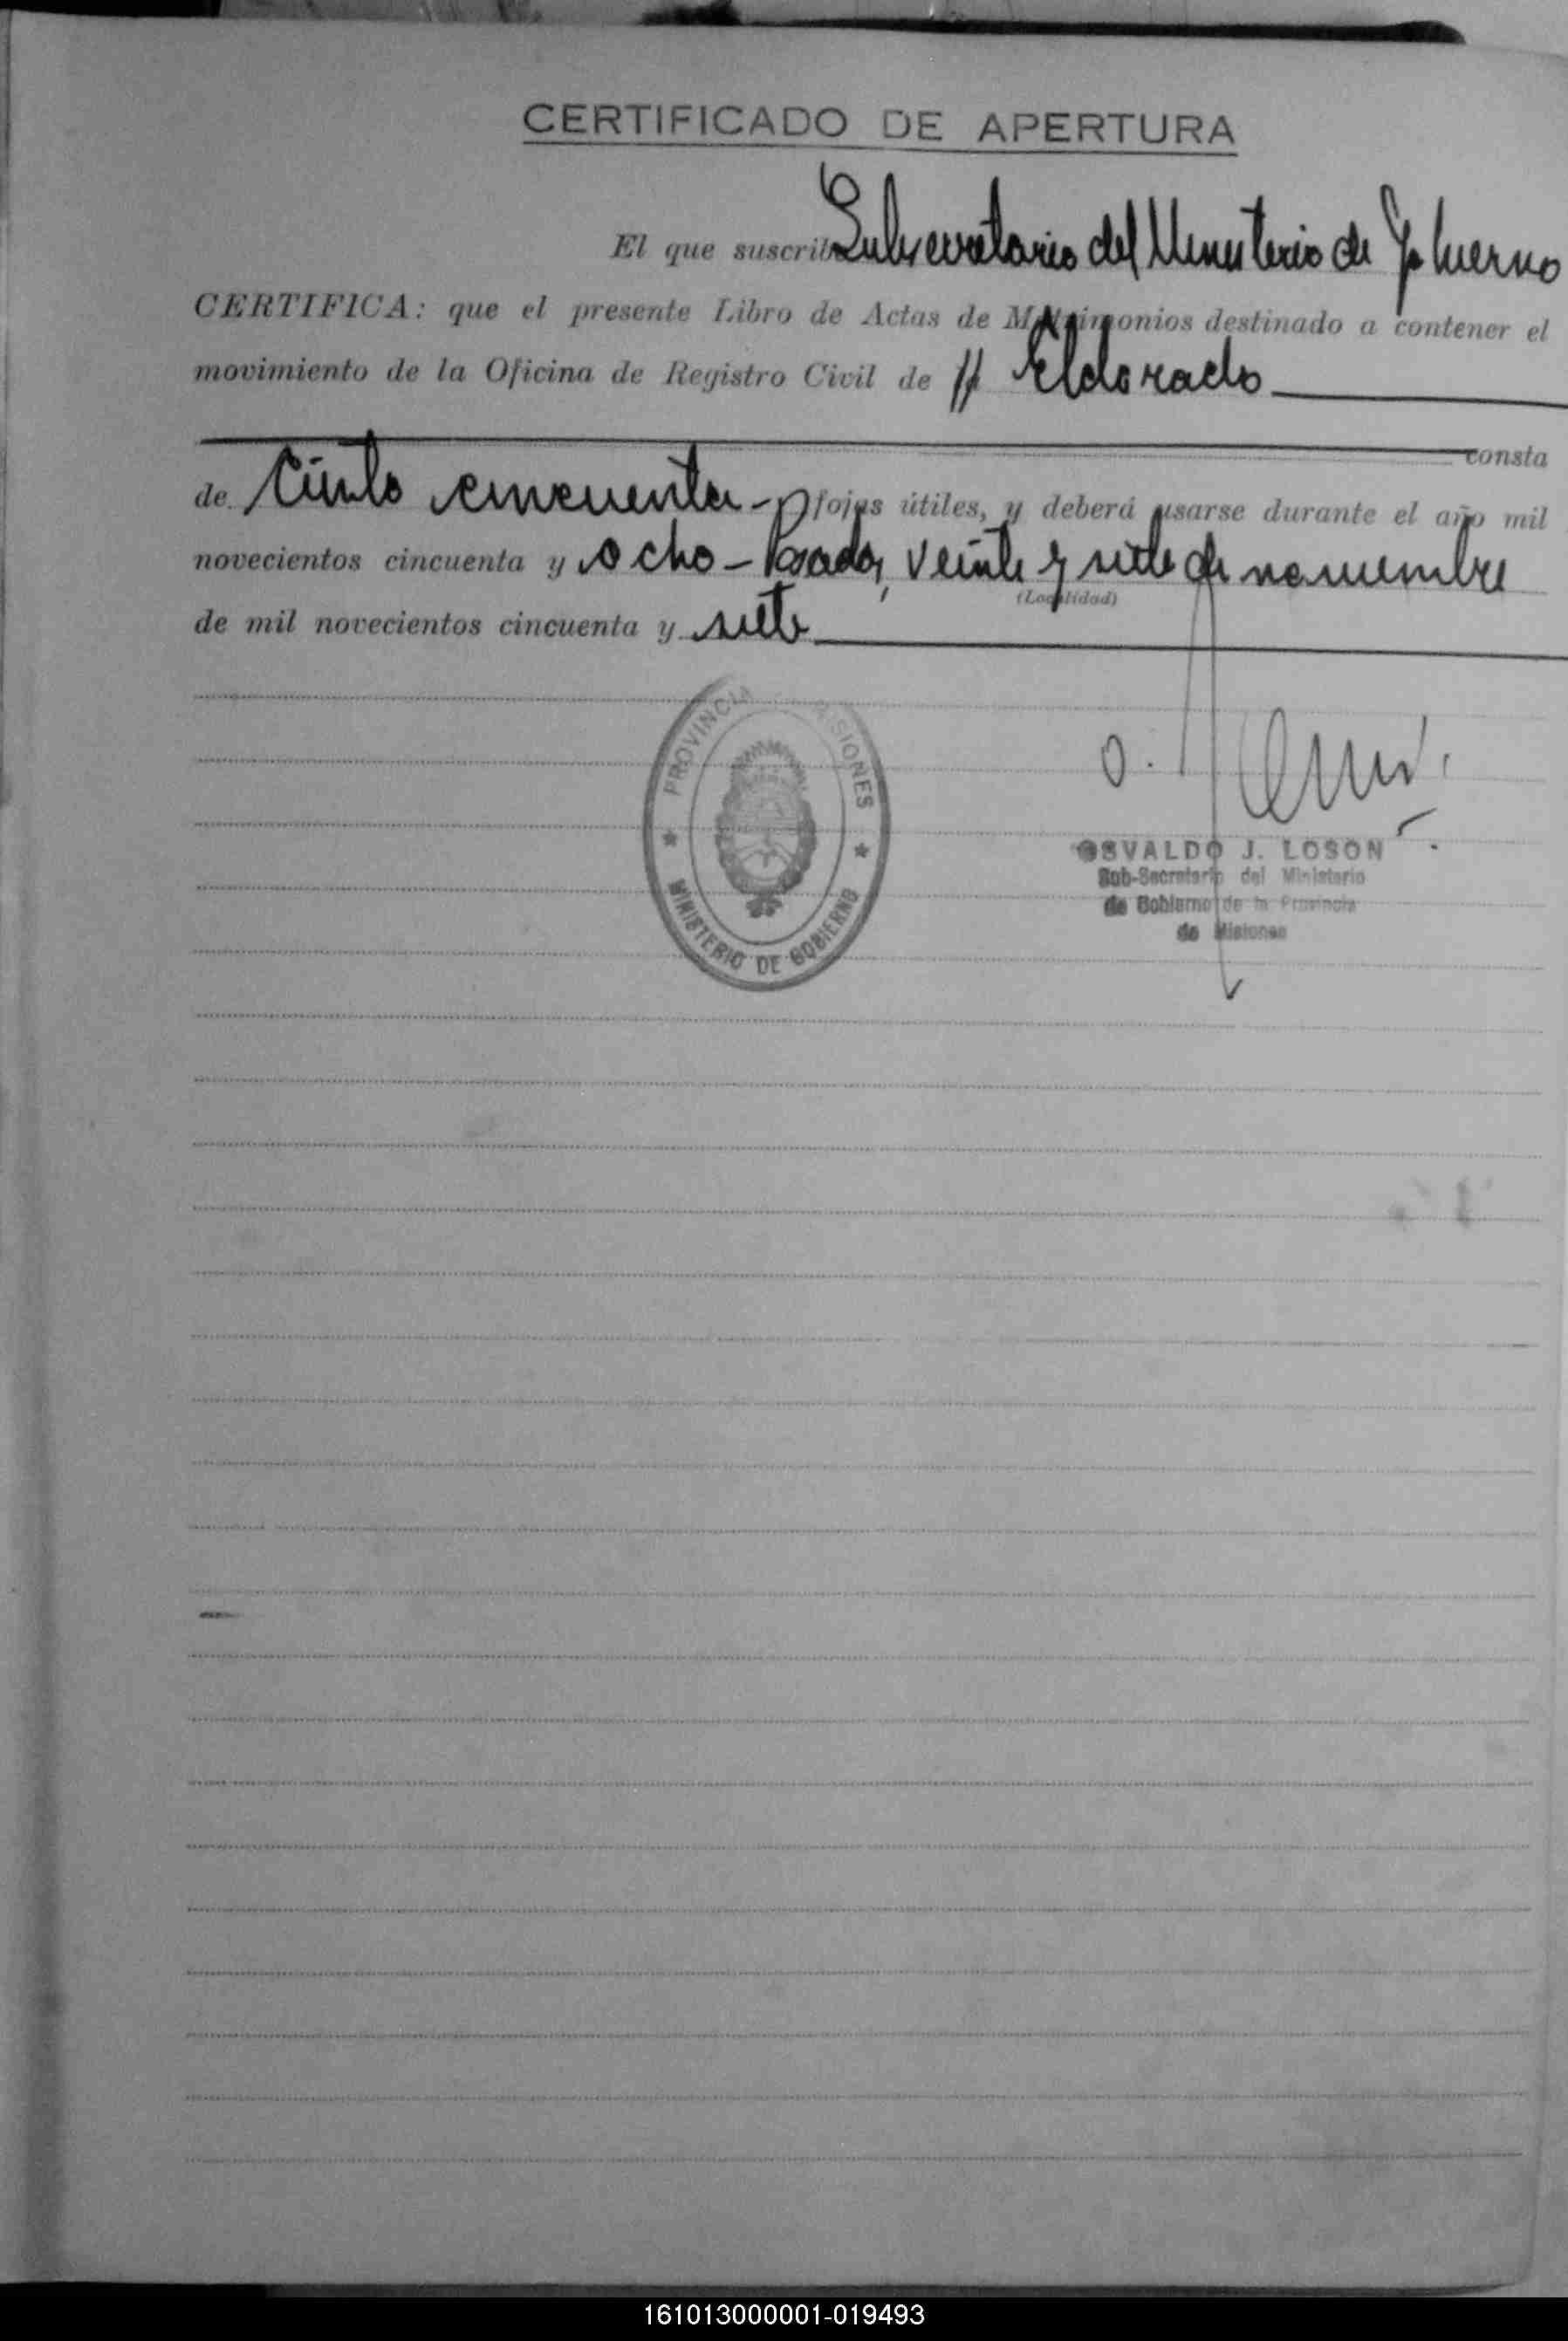 CERTIFICADO DE APERTURA
El que suscribe Subsecretario del Ministerio de Gobierno
CERTIFICA: que el presente Libro de Actas de Matrimonios destinado a contener el
movimiento de la Oficina de Registro Civil de // Eldorado
consta
de Ciento cincuenta - fojas útiles, y deberá usarse durante el año mil
novecientos cincuenta y ocho - Posadas, veinte y siete de noviembre
(Localidad)
de mil novecientos cincuenta y siete
PROVINCIA MISIONES
MINISTERIO DE GOBIERNO
OSVALDO J. LOSON
Sub-Secretario del Ministerio
de Gobierno de la Provincia
de Misiones
161013000001-019493